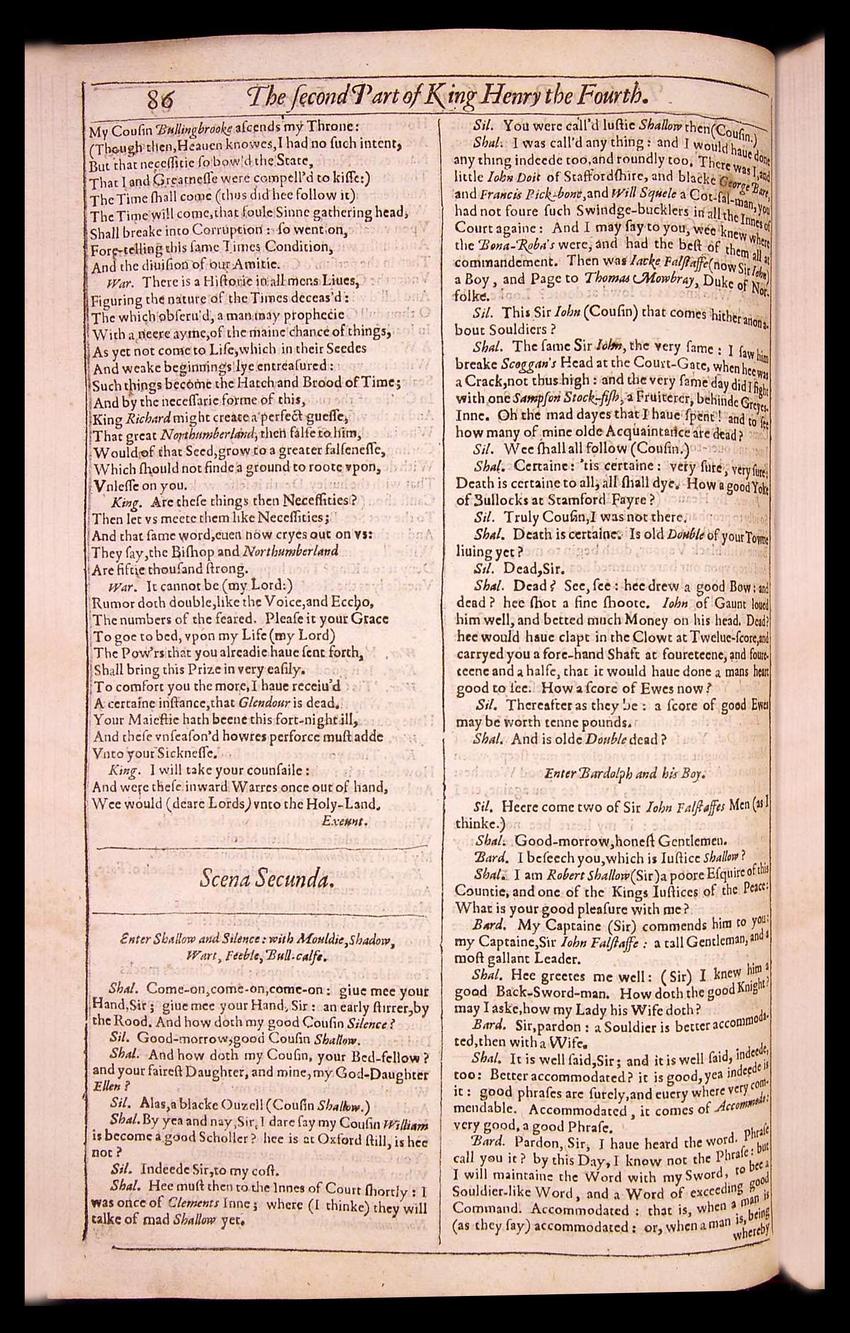 86
The ſecond Part of King Henry the Fourth.
My Couſin Bullingbrooke aſcends my Throne:
(Though then, Heauen knowes, I had no ſuch intent,
But that neceſſitie ſo bow'd the State,
That I and Greatneſſe were compell'd to kiſſe:)
The Time ſhall come (thus did hee follow it)
The Time will come, that foule Sinne gathering head,
Shall breake into Corruption: ſo went on,
Fore-telling this ſame Times Condition,
And the diuiſion of our Amitie.
War. There is a Hiſtorie in all mens Liues,
Figuring the nature of the Times deceas'd:
The which obſeru'd, a man may prophecie
With a neere ayme, of the maine chance of things,
As yet not come to Life, which in their Seedes
And weake beginnings lye entreaſured:
Such things become the Hatch and Brood of Time;
And by the neceſſarie forme of this,
King Richard might create a perfect gueſſe,
That great Northumberland, then falſe to him,
Would of that Seed, grow to a greater falſeneſſe,
Which ſhould not finde a ground to roote vpon,
Vnleſſe on you.
King. Are theſe things then Neceſſities?
Then let vs meete them like Neceſſities;
And that ſame word, euen now cryes out on vs:
They ſay, the Biſhop and Northumberland
Are fiftie thouſand ſtrong.
War. It cannot be (my Lord:)
Rumor doth double, like the Voice, and Eccho,
The numbers of the feared. Pleaſe it your Grace
To goe to bed, vpon my Life (my Lord)
The Pow'rs that you alreadie haue ſent forth,
Shall bring this Prize in very eaſily.
To comfort you the more, I haue receiu'd
A certaine inſtance, that Glendour is dead.
Your Maieſtie hath beene this fort-night ill,
And theſe vnſeaſon'd howres perforce muſt adde
Vnto your Sickneſſe.
King. I will take your counſaile:
And were theſe inward Warres once out of hand,
Wee would (deare Lords) vnto the Holy-Land.
Exeunt.
Scena Secunda.
Enter Shallow and Silence: with Mouldie, Shadow,
Wart, Feeble, Bull-calfe.
Shal. Come-on, come-on, come-on: giue mee your
Hand, Sir; giue mee your Hand, Sir: an early ſtirrer, by
the Rood. And how doth my good Couſin Silence?
Sil. Good-morrow, good Couſin Shallow.
Shal. And how doth my Couſin, your Bed-fellow?
and your faireſt Daughter, and mine, my God-Daughter
Ellen?
Sil. Alas, a blacke Ouzell (Couſin Shallow.)
Shal. By yea and nay, Sir, I dare ſay my Couſin William
is become a good Scholler? hee is at Oxford ſtill, is hee
not?
Sil. Indeede Sir, to my coſt.
Shal. Hee muſt then to the Innes of Court ſhortly: I
was once of Clements Inne; where (I thinke) they will
talke of mad Shallow yet.
Sil. You were call'd luſtie Shallow then (Couſin.)
Shal. I was call'd any thing: and I would haue done
any thing indeede too, and roundly too. There was I, and
little Iohn Doit of Staffordſhire, and blacke George Bare,
and Francis Pick-bone, and Will Squele a Cot-ſal-man, you
had not foure ſuch Swindge-bucklers in all the Innes of
Court againe: And I may ſay to you, wee knew where
the Bona-Roba's were, and had the beſt of them all at
commandement. Then was Iacke Falſtaffe (now Sir Iohn)
a Boy, and Page to Thomas Mowbray, Duke of Nor-
folke.
Sil. This Sir Iohn (Couſin) that comes hither anon a-
bout Souldiers?
Shal. The ſame Sir Iohn, the very ſame: I ſaw him
breake Scoggan's Head at the Court-Gate, when hee was
a Crack, not thus high: and the very ſame day did I fight
with one Sampſon Stock-fiſh, a Fruiterer, behinde Greyes-
Inne. Oh the mad dayes that I haue ſpent! and to ſee
how many of mine olde Acquaintance are dead?
Sil. Wee ſhall all follow (Couſin.)
Shal. Certaine: 'tis certaine: very ſure, very ſure:
Death is certaine to all, all ſhall dye. How a good Yoke
of Bullocks at Stamford Fayre?
Sil. Truly Couſin, I was not there.
Shal. Death is certaine. Is old Double of your Towne
liuing yet?
Sil. Dead, Sir.
Shal. Dead? See, ſee: hee drew a good Bow: and
dead? hee ſhot a fine ſhoote. Iohn of Gaunt loued
him well, and betted much Money on his head. Dead?
hee would haue clapt in the Clowt at Twelue-ſcore, and
carryed you a fore-hand Shaft at foureteene, and foure-
teene and a halfe, that it would haue done a mans heart
good to ſee. How a ſcore of Ewes now?
Sil. Thereafter as they be: a ſcore of good Ewes
may be worth tenne pounds.
Shal. And is olde Double dead?
Enter Bardolph and his Boy.
Sil. Heere come two of Sir Iohn Falſtaffes Men (as I
thinke.)
Shal. Good-morrow, honeſt Gentlemen.
Bard. I beſeech you, which is Iuſtice Shallow?
Shal. I am Robert Shallow (Sir) a poore Eſquire of this
Countie, and one of the Kings Iuſtices of the Peace:
What is your good pleaſure with me?
Bard. My Captaine (Sir) commends him to you:
my Captaine, Sir Iohn Falſtaffe: a tall Gentleman, and a
moſt gallant Leader.
Shal. Hee greetes me well: (Sir) I knew him a
good Back-Sword-man. How doth the good Knight?
may I aske, how my Lady his Wife doth?
Bard. Sir, pardon: a Souldier is better accommoda-
ted, then with a Wife.
Shal. It is well ſaid, Sir; and it is well ſaid, indeede,
too: Better accommodated? it is good, yea indeede is
it: good phraſes are ſurely, and euery where very com-
mendable. Accommodated, it comes of Accommodo:
very good, a good Phraſe.
Bard. Pardon, Sir, I haue heard the word. Phraſe
call you it? by this Day, I know not the Phraſe: but
I will maintaine the Word with my Sword, to bee a
Souldier-like Word, and a Word of exceeding good
Command. Accommodated: that is, when a man is
(as they ſay) accommodated: or, when a man is, being
whereby